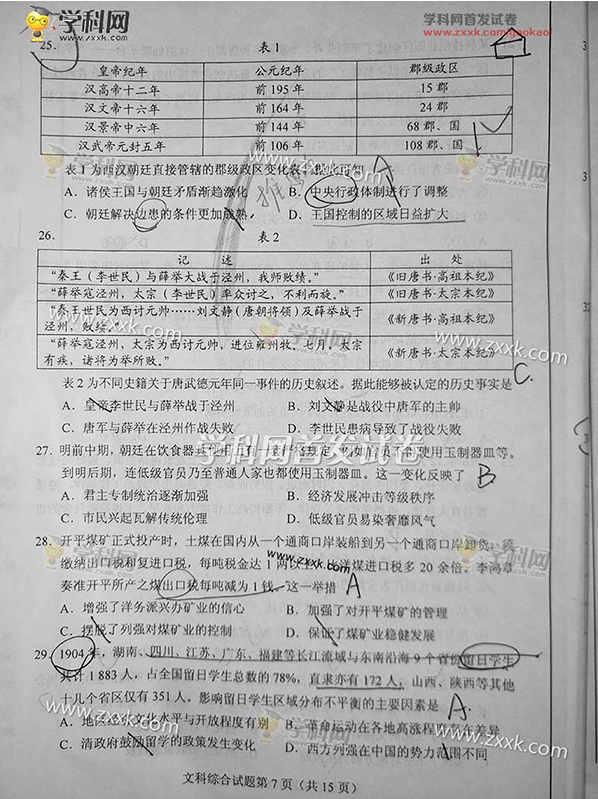 学科网 www.zxxk.com
学科网首发试卷
www.zxxk.com/gaokao/
25. 表1
皇帝纪年 公元纪年 郡级政区
汉高帝十二年 前195年 15郡
汉文帝十六年 前164年 24郡
汉景帝中六年 前144年 68郡、国
汉武帝元封五年 前106年 108郡、国
表1为西汉朝廷直接管辖的郡级政区变化表。 A
A．诸侯王国与朝廷矛盾渐趋激化 B．中央行政体制进行了调整
C．朝廷解决边患的条件更加成熟 D．王国控制的区域日益扩大
26. 表2
记述 出处
“秦王（李世民）与薛举大战于泾州，我师败绩。” 《旧唐书·高祖本纪》
“薛举寇泾州，太宗（李世民）率众讨之，不利而旋。” 《旧唐书·太宗本纪》
“秦王世民为西讨元帅……刘文静（唐朝将领）及薛举战于
泾州，败绩。” 《新唐书·高祖本纪》
“薛举寇泾州，太宗为西讨元帅，进位雍州牧。七月，太宗
有疾，诸将为举所败。” 《新唐书·太宗本纪》
C.
表2为不同史籍关于唐武德元年同一事件的历史叙述。据此能够被认定的历史事实是
A．皇帝李世民与薛举战于泾州 B．刘文静是战役中唐军的主帅
C．唐军与薛举在泾州作战失败 D．李世民患病导致了战役失败
27. 明前中期，朝廷在饮食器具 使用玉制器皿等。
到明后期，连低级官员乃至普通人家也都使用玉制器皿。这一变化反映了 B
A．君主专制统治逐渐加强 B．经济发展冲击等级秩序
C．市民兴起瓦解传统伦理 D．低级官员易染奢靡风气
28. 开平煤矿正式投产时，土煤在国内从一个通商口岸装船到另一个通商口岸卸货，
缴纳出口税和复进口税，每吨税金达1两 洋煤进口税多20余倍。李鸿章
奏准开平所产之煤出口税每吨减为1钱。这一举措 A
A．增强了洋务派兴办矿业的信心 B．加强了对开平煤矿的管理
C．摆脱了列强对煤矿业的控制 D．保证了煤矿业稳健发展
29. 1904年，湖南、四川、江苏、广东、福建等长江流域与东南沿海9个省份留日学生
共计1883人，占全国留日学生总数的78%，直隶亦有172人，山西、陕西等其他
十几个省区仅有351人。影响留日学生区域分布不平衡的主要因素是 A.
A．地区经济文化水平与开放程度有别 B．革命运动在各地高涨程度存在差异
C．清政府鼓励留学的政策发生变化 D．西方列强在中国的势力范围不同
文科综合试题第7页（共15页）